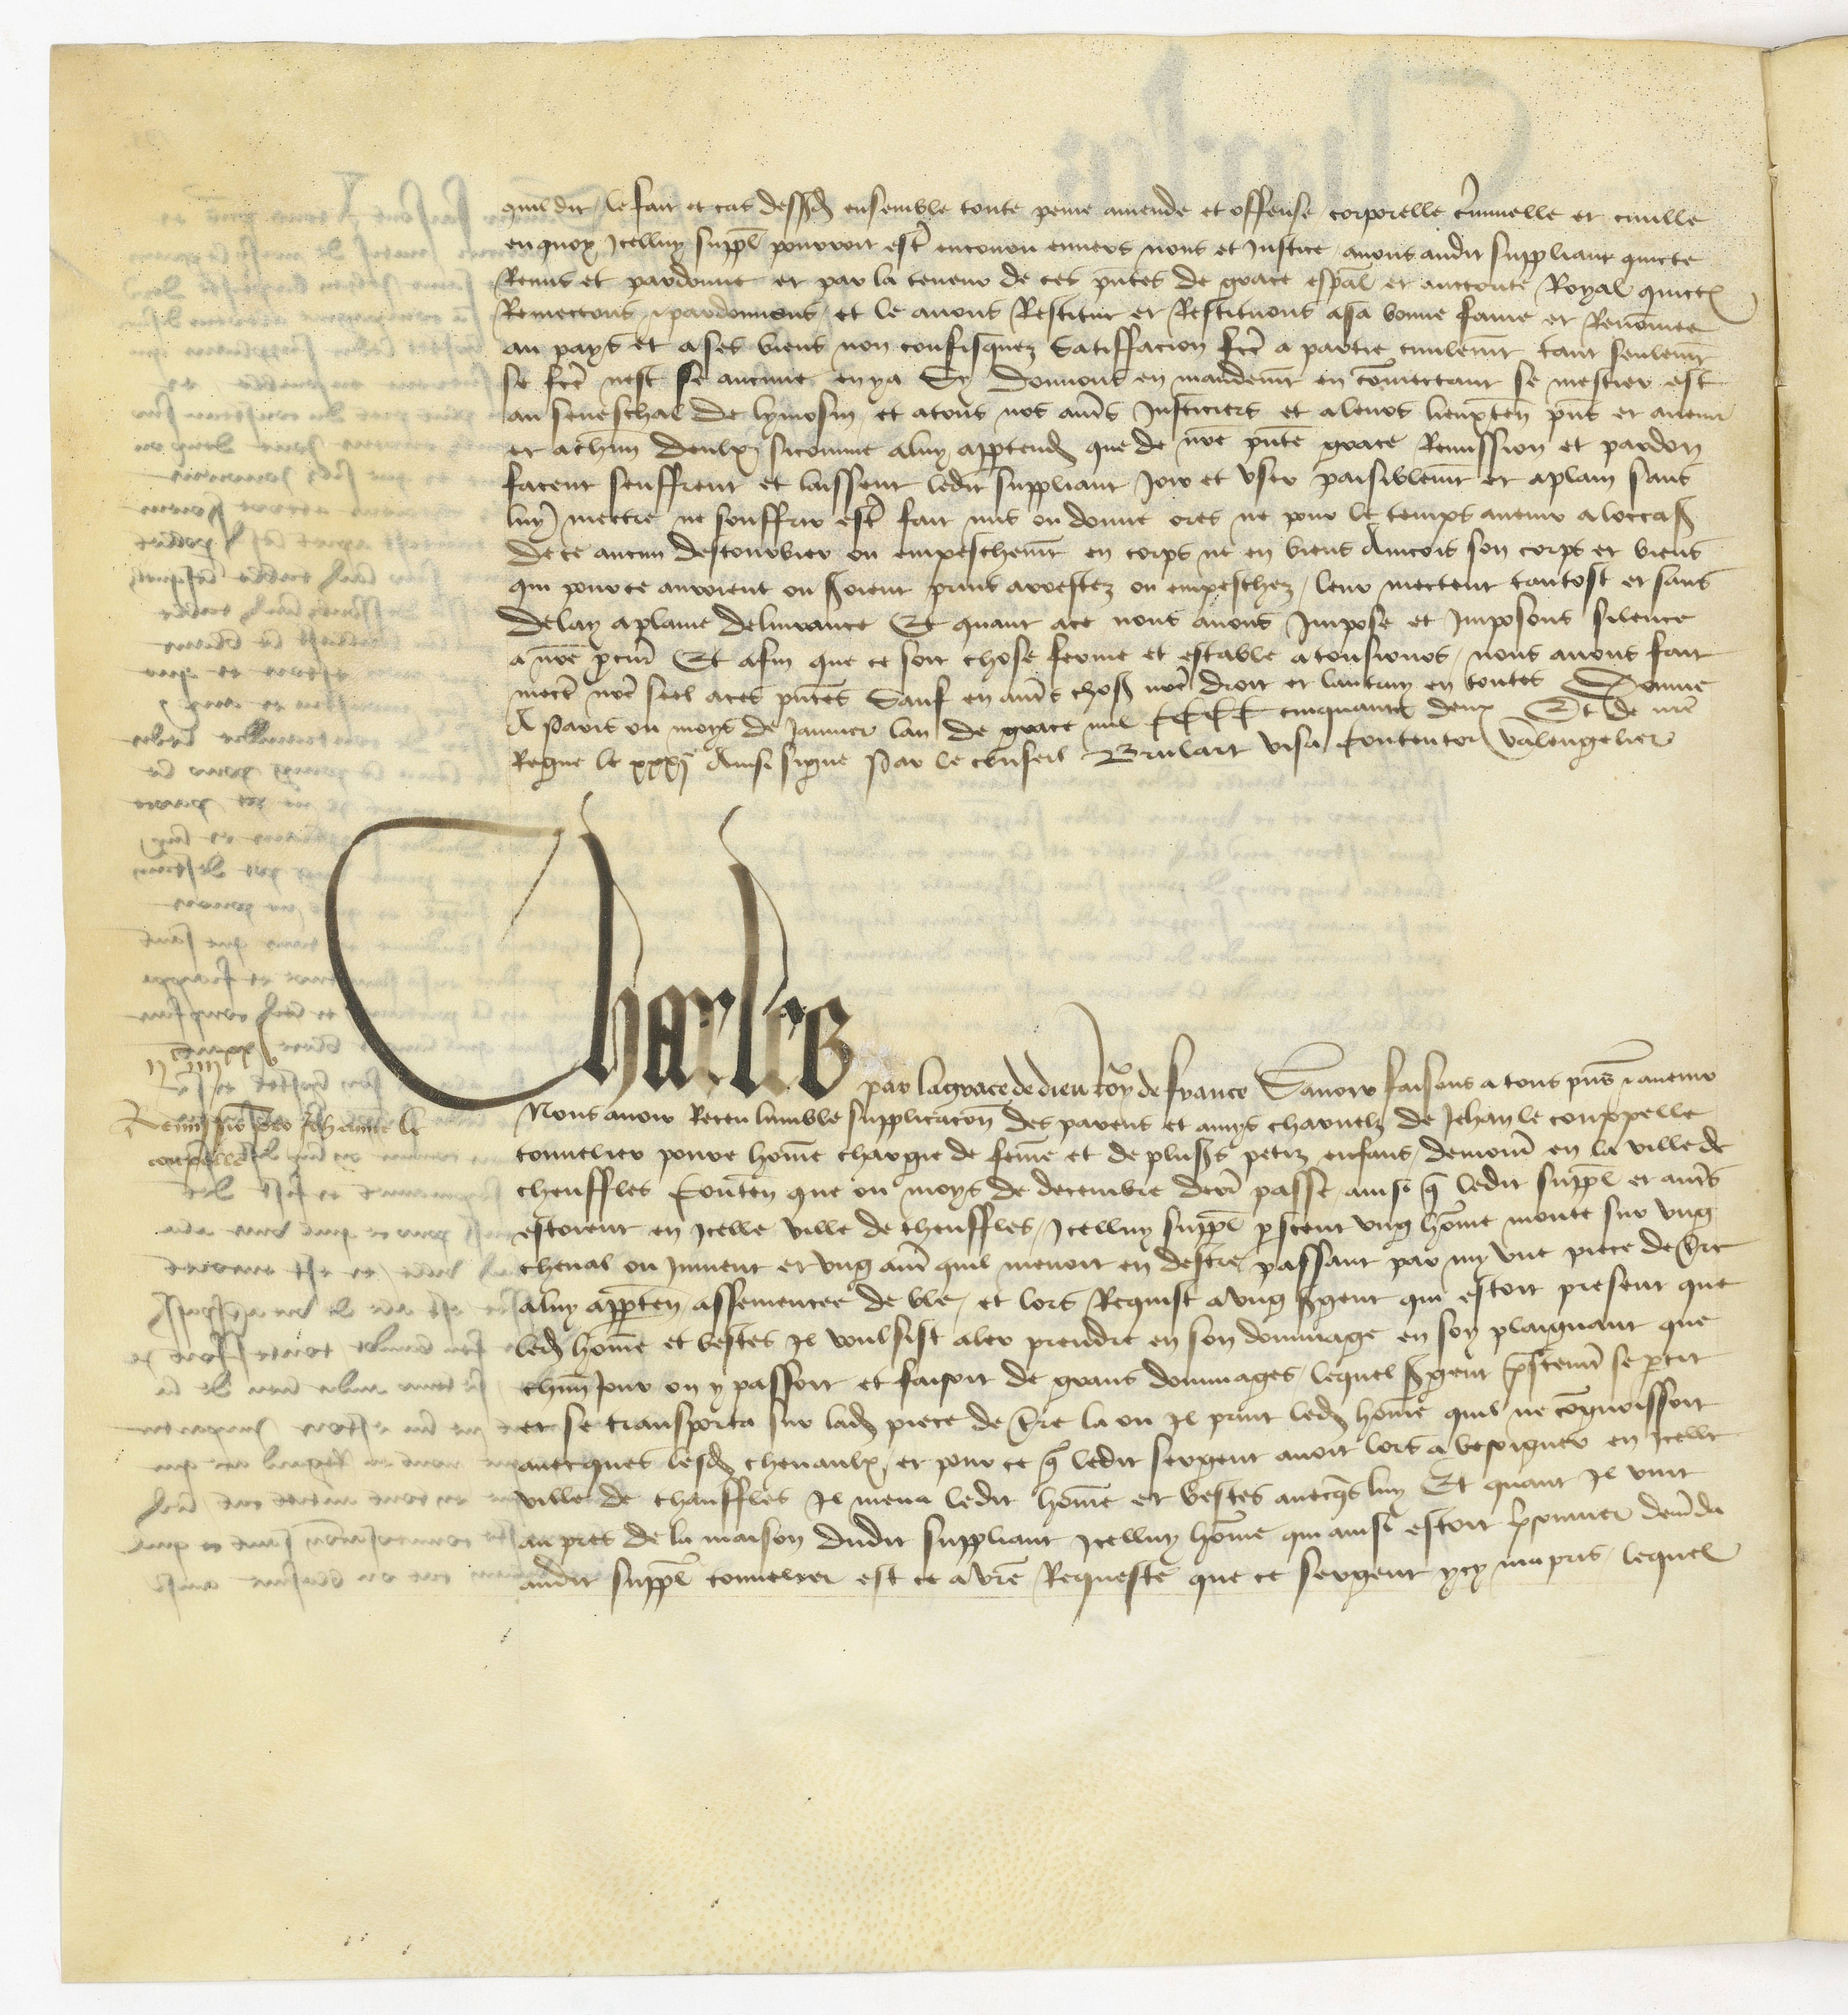 quil dit le fait et cas dessusd ensemble toute peine amende et offense corporelle c͛iminelle et ciuille
en quoy Icelluy suppl̄ pourroit est͛ encouru enuers nous et Justice auons audit suppliant quicte
Remis et pardonne et par la teneur de ces pn̄tes de grace esp̄al et auctorite Royal quicto͂s
Remectons ⁊ pardonnons et le auons Restitue et Restituons a sa bonne fame et Renōmee
au pays et a ses biens non confisquez Satiffacion fc̄e a partie ciuilem̄t tant seulem̄t
se fc̄e nest se aucune en ya Sy donnons en mandem̄t en cōmectant se mestier est
au seneschal de lymosin et a tous nos aut͛s Justiciers et a leurs lieuxten̄ pn̄s et auenir
et a chūn deulx sicomme a luy app̱tendr̄ que de nr̄e pn̄te grace Remission et pardon
facent seuffrent et laissent ledit suppliant Joir et vser paisiblem̄t et a plain sans
luy mectre ne souffrir est͛ fait mis ou donne ores ne pour le temps auenir a loccaš
de ce aucun destourbier ou empeschem̄t en corps ne en biens Aincois son corps et biens
qui pour ce auroient ou s͛oient prins arrestez ou empeschez leur mectent tantost et sans
delay a plaine deliurance Et quant a ce nous auons Impose et Imposons silence
a nr̄e ꝓcur̄ Et afin que ce soit chose ferme et estable a tousiours nous auons fait
mect͛ nr̄e seel a ces pn̄tes Sauf en aut͛s choš nr̄e droit et lautruy en toutes Donne
A paris ou moys de Januier lan de grace mil CCCC cinquante deux Et de nr̄e
Regne le xxxjᵉ Ainsi signe Par le conseil Brulart visa Contentor valengelier
Charles par la grace de dieu Roy de france Sauoir faisons a tous pn̄s ⁊ auenir
ijᶜ iiijˣˣ xvj
Remissio pro Johanne le
couppelle
Nous auoir Receu lumble supplicacōn des parens et amys charnelz de Jehan le couppelle
tonnelier poure hōme chargie de fēme et de plus͛s petiz enfans demour̄ en la ville de
cheuffles Conten̄ que ou moys de decembre derr̄ passe ainsi q̄ ledit suppl̄ et aut͛s
estoient en Icelle ville de cheuffles Icelluy suppl̄ ꝑceut vng hōme monte sur vng
cheual ou Jument et vng aut͛ quil menoit en destre passant par my vne piece de t͛re
a luy app̱ten̄ assemencee de ble et lors Requist a vng s͛gent qui estoit present que
ledr̄ hōme et bestes Il voulsist aler prendre en son dommage en soy plaignant que
chūn Jour on y passoit et faisoit de grans dommages lequel s͛gent p̄stem̄t se ꝑtit
et se transporta sur ladr̄ piece de t͛re la ou Il print ledr̄ hōme quil ne cōgnoissoit
auecques lesdr̄ cheuaulx et pour ce q̄ ledit sergent auoit lors a besoigner en Icelle
ville de chauffles Il mena ledit hōme et bestes auecq̄s luy Et quant Il vint
au pres de la maison dudit suppliant Icelluy hōme qui ainsi estoit p̄sonnier dem̄da
audit suppl̄ tonnelier est ce a vr̄e Requeste que ce sergent ycy ma pris lequel